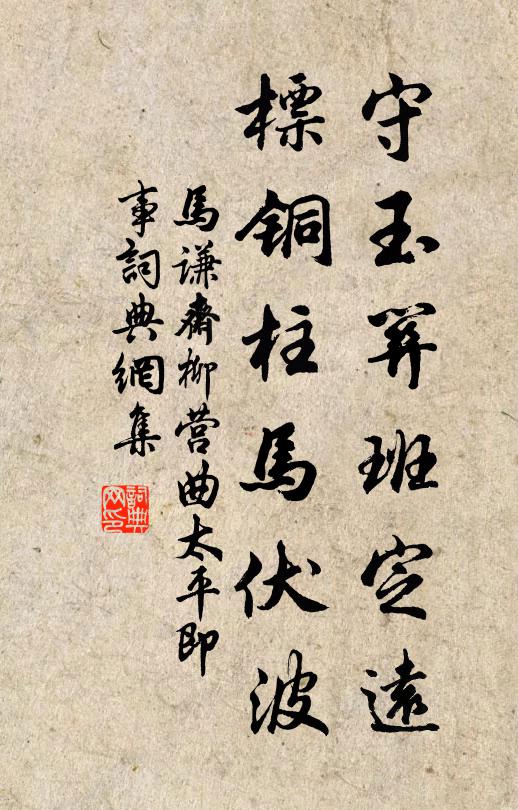 守玉關班定遠
標銅柱馬伏波
馬謙齋柳營曲太平即
事詞典網集
詞典
网印